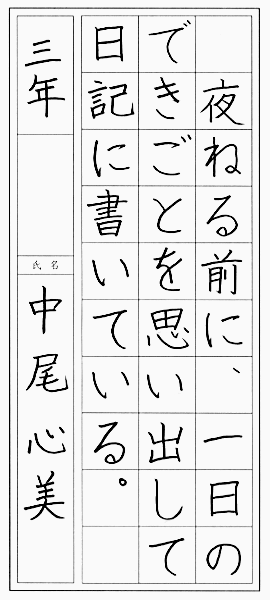 夜ねる前に、一日の
できごとを思い出して
日記に書いている。
三年
氏名
中尾心美